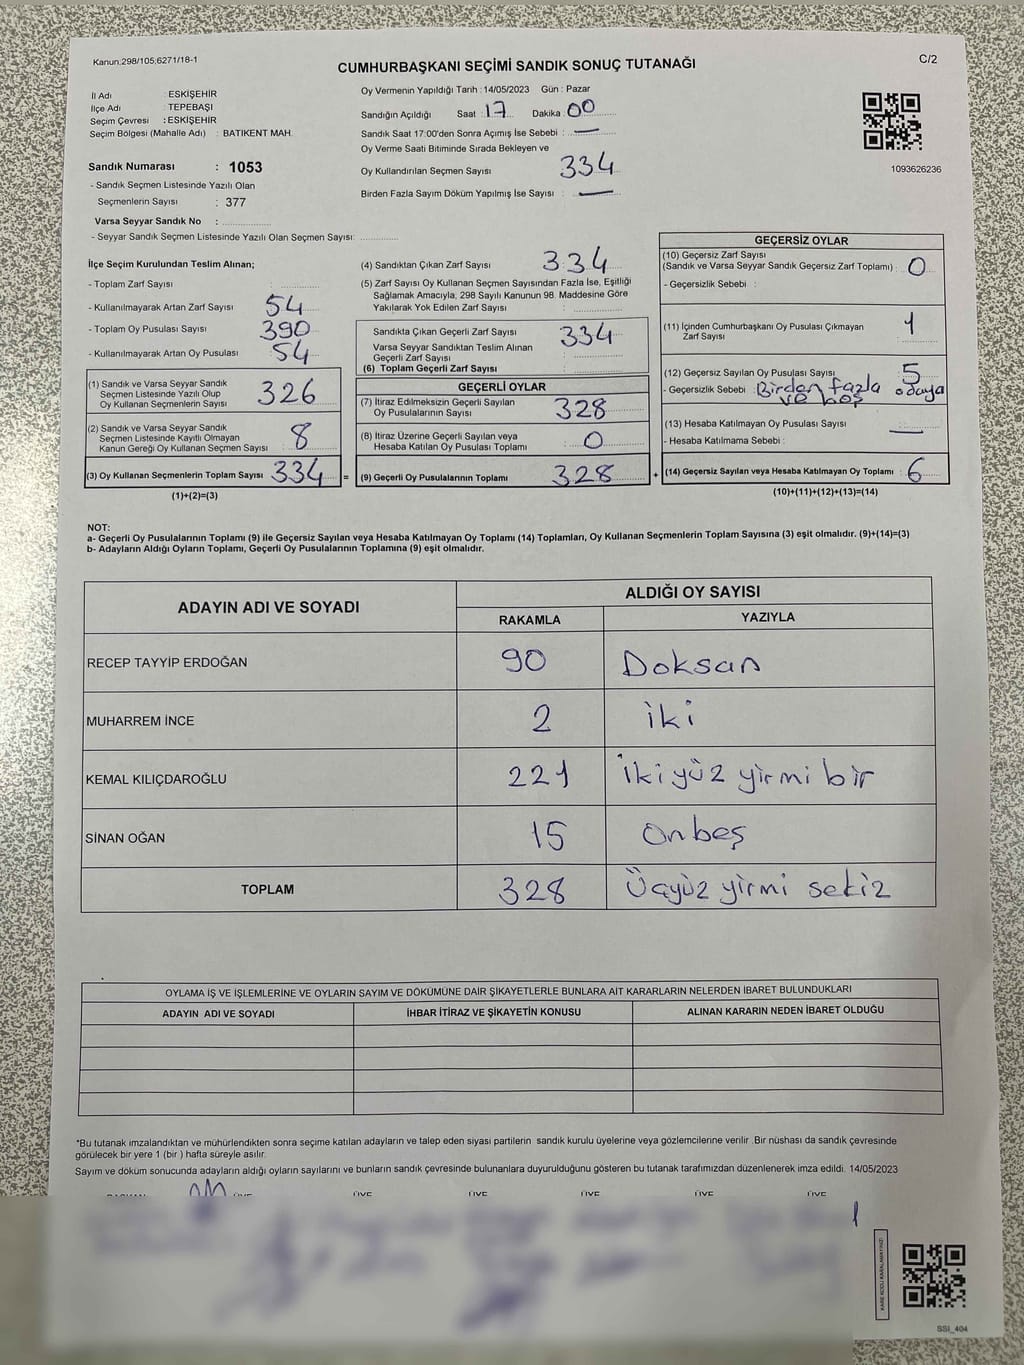 Kanun:298/105,6271/18-1
CUMHURBAŞKANI SEÇİMİ SANDIK SONUÇ TUTANAĞI
C/2
İl Adı : ESKİŞEHİR
İlçe Adı : TEPEBAŞI
Seçim Çevresi : ESKİŞEHİR
Seçim Bölgesi (Mahalle Adı) : BATIKENT MAH.
Sandık Numarası : 1053
- Sandık Seçmen Listesinde Yazılı Olan
Seçmenlerin Sayısı : 377
Varsa Seyyar Sandık No :
- Seyyar Sandık Seçmen Listesinde Yazılı Olan Seçmen Sayısı:
Oy Vermenin Yapıldığı Tarih : 14/05/2023 Gün : Pazar
Sandığın Açıldığı Saat : 17 Dakika : 00
Sandık Saat 17:00'den Sonra Açımış İse Sebebi : —
Oy Verme Saati Bitiminde Sırada Bekleyen ve
Oy Kullandırılan Seçmen Sayısı 334
Birden Fazla Sayım Döküm Yapılmış İse Sayısı : —
1093626236
İlçe Seçim Kurulundan Teslim Alınan;
- Toplam Zarf Sayısı :
- Kullanılmayarak Artan Zarf Sayısı 54
- Toplam Oy Pusulası Sayısı 390
- Kullanılmayarak Artan Oy Pusulası 54
(1) Sandık ve Varsa Seyyar Sandık
Seçmen Listesinde Yazılı Olup
Oy Kullanan Seçmenlerin Sayısı 326
(2) Sandık ve Varsa Seyyar Sandık
Seçmen Listesinde Kayıtlı Olmayan
Kanun Gereği Oy Kullanan Seçmen Sayısı 8
(3) Oy Kullanan Seçmenlerin Toplam Sayısı 334 =
(1)+(2)=(3)
(4) Sandıktan Çıkan Zarf Sayısı 334
(5) Zarf Sayısı Oy Kullanan Seçmen Sayısından Fazla İse, Eşitliği
Sağlamak Amacıyla; 298 Sayılı Kanunun 98. Maddesine Göre
Yakılarak Yok Edilen Zarf Sayısı :
Sandıkta Çıkan Geçerli Zarf Sayısı 334
Varsa Seyyar Sandıktan Teslim Alınan
Geçerli Zarf Sayısı :
(6) Toplam Geçerli Zarf Sayısı
GEÇERLİ OYLAR
(7) İtiraz Edilmeksizin Geçerli Sayılan
Oy Pusulalarının Sayısı 328
(8) İtiraz Üzerine Geçerli Sayılan veya
Hesaba Katılan Oy Pusulası Toplamı : 0
(9) Geçerli Oy Pusulalarının Toplamı 328 +
GEÇERSİZ OYLAR
(10) Geçersiz Zarf Sayısı
(Sandık ve Varsa Seyyar Sandık Geçersiz Zarf Toplamı) : 0
- Geçersizlik Sebebi :
(11) İçinden Cumhurbaşkanı Oy Pusulası Çıkmayan
Zarf Sayısı : 1
(12) Geçersiz Sayılan Oy Pusulası Sayısı 5
- Geçersizlik Sebebi : Birden fazla adaya
ve boş
(13) Hesaba Katılmayan Oy Pusulası Sayısı —
- Hesaba Katılmama Sebebi :
(14) Geçersiz Sayılan veya Hesaba Katılmayan Oy Toplamı : 6
(10)+(11)+(12)+(13)=(14)
NOT:
a- Geçerli Oy Pusulalarının Toplamı (9) ile Geçersiz Sayılan veya Hesaba Katılmayan Oy Toplamı (14) Toplamları, Oy Kullanan Seçmenlerin Toplam Sayısına (3) eşit olmalıdır. (9)+(14)=(3)
b- Adayların Aldığı Oyların Toplamı, Geçerli Oy Pusulalarının Toplamına (9) eşit olmalıdır.
ADAYIN ADI VE SOYADI
ALDIĞI OY SAYISI
RAKAMLA YAZIYLA
RECEP TAYYİP ERDOĞAN 90 Doksan
MUHARREM İNCE 2 iki
KEMAL KILIÇDAROĞLU 221 ikiyüz yirmi bir
SİNAN OĞAN 15 onbeş
TOPLAM 328 Üçyüz yirmi sekiz
OYLAMA İŞ VE İŞLEMLERİNE VE OYLARIN SAYIM VE DÖKÜMÜNE DAİR ŞİKAYETLERLE BUNLARA AİT KARARLARIN NELERDEN İBARET BULUNDUKLARI
ADAYIN ADI VE SOYADI İHBAR İTİRAZ VE ŞİKAYETİN KONUSU ALINAN KARARIN NEDEN İBARET OLDUĞU
*Bu tutanak imzalandıktan ve mühürlendikten sonra seçime katılan adayların ve talep eden siyasi partilerin sandık kurulu üyelerine veya gözlemcilerine verilir .Bir nüshası da sandık çevresinde
görülecek bir yere 1 (bir ) hafta süreyle asılır.
Sayım ve döküm sonucunda adayların aldığı oyların sayılarını ve bunların sandık çevresinde bulunanlara duyurulduğunu gösteren bu tutanak tarafımızdan düzenlenerek imza edildi. 14/05/2023
BAŞKAN ÜYE ÜYE ÜYE ÜYE ÜYE ÜYE
KARE KODU KARALAMAYINIZ!
SSI_404